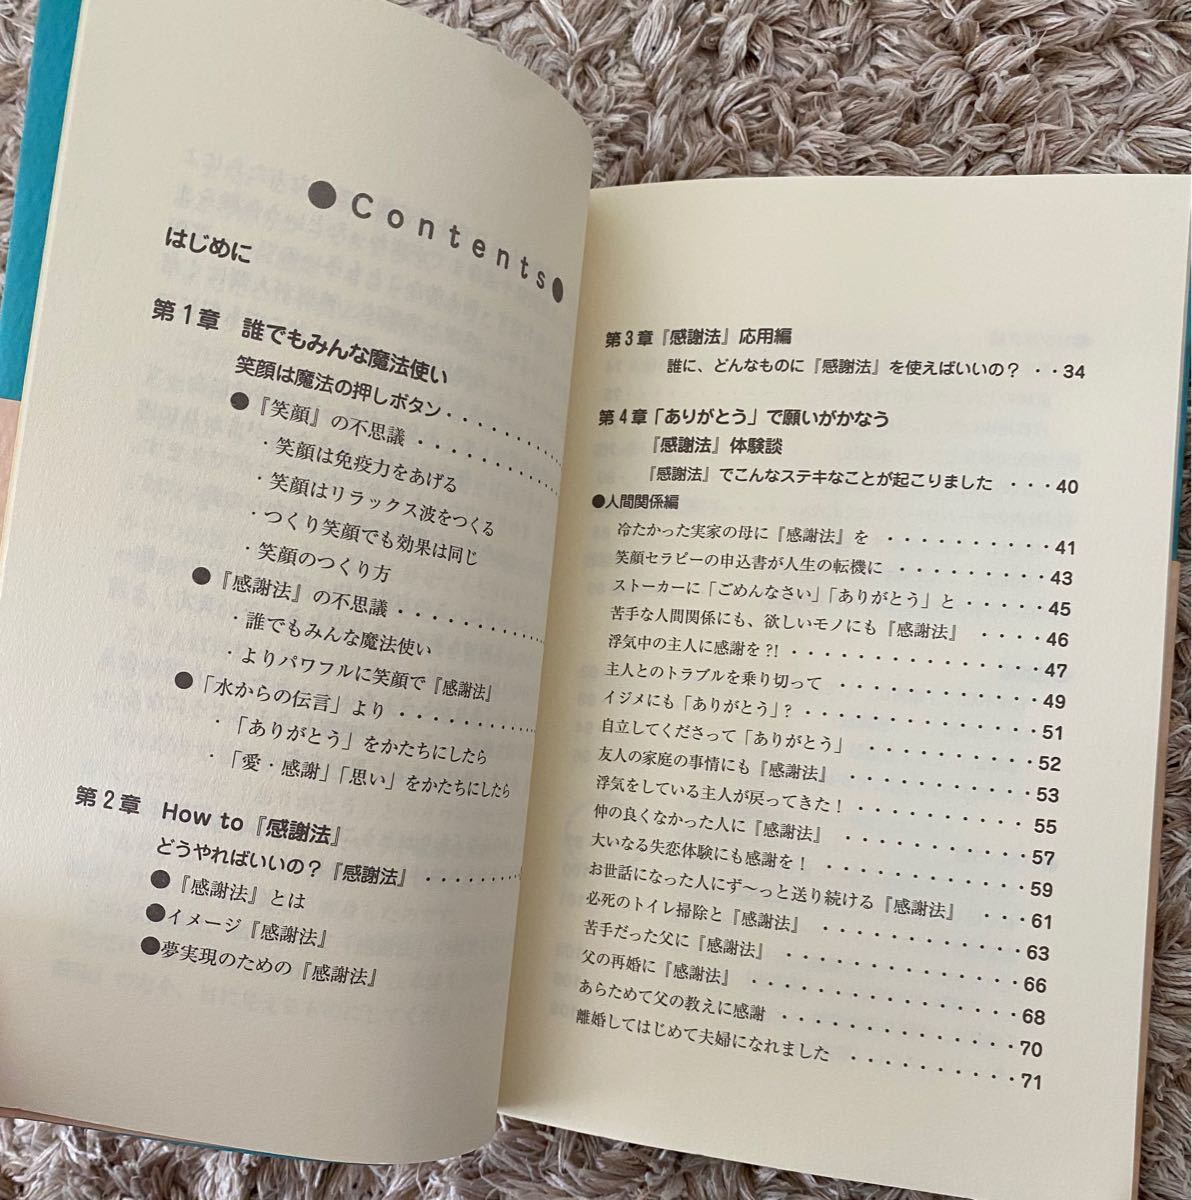 ●Contents●
はじめに
第1章 誰でもみんな魔法使い
笑顔は魔法の押しボタン・・・
●『笑顔』の不思議・・・・・・・・
・笑顔は免疫力をあげる
・笑顔はリラックス波をつくる
・つくり笑顔でも効果は同じ
・笑顔のつくり方
●『感謝法』の不思議・・・・・・・・
・誰でもみんな魔法使い
・よりパワフルに笑顔で『感謝法』
●「水からの伝言」より・・・・・・・・
・「ありがとう」をかたちにしたら
・「愛・感謝」「思い」をかたちにしたら
第2章 How to『感謝法』
どうやればいいの？『感謝法』・・・・・・
●『感謝法』とは
●イメージ『感謝法』
●夢実現のための『感謝法』
第3章『感謝法』応用編
誰に、どんなものに『感謝法』を使えばいいの？・・34
第4章「ありがとう」で願いがかなう
『感謝法』体験談
『感謝法』でこんなステキなことが起こりました・・・40
●人間関係編
冷たかった実家の母に『感謝法』を・・・・・・・・・・41
笑顔セラピーの申込書が人生の転機に・・・・・・・・・43
ストーカーに「ごめんなさい」「ありがとう」と・・・・・45
苦手な人間関係にも、欲しいモノにも『感謝法』・・・・46
浮気中の主人に感謝を?!・・・・・・・・・・・・・・・47
主人とのトラブルを乗り切って・・・・・・・・・・・・49
イジメにも「ありがとう」?・・・・・・・・・・・・・・51
自立してくださって「ありがとう」・・・・・・・・・・52
友人の家庭の事情にも『感謝法』・・・・・・・・・・・53
浮気をしている主人が戻ってきた！・・・・・・・・・・55
仲の良くなかった人に『感謝法』・・・・・・・・・・・57
大いなる失恋体験にも感謝を！・・・・・・・・・・・・59
お世話になった人にず〜っと送り続ける『感謝法』・・・61
必死のトイレ掃除と『感謝法』・・・・・・・・・・・・63
苦手だった父に『感謝法』・・・・・・・・・・・・・・66
父の再婚に『感謝法』・・・・・・・・・・・・・・・・68
あらためて父の教えに感謝・・・・・・・・・・・・・・70
離婚してはじめて夫婦になれました・・・・・・・・・・71